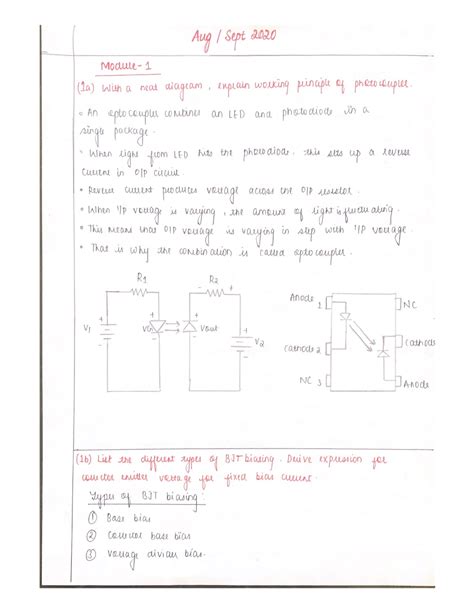 Aug / Sept 2020
Module-1
(1a) With a neat diagram, explain working principle of photocoupler.
• An optocoupler combines an LED and photodiode in a
single package.
• When light from LED hits the photodiode. this sets up a reverse
current in O/P circuit.
• Reverse current produces voltage across the O/P resistor.
• When I/P voltage is varying, the amount of light is fluctuating.
• This means that O/P voltage is varying in step with I/P voltage.
• That is why the combination is called optocoupler.
R1
R2
V1
Vout
V2
Anode 1
NC
Cathode 2
Cathode
NC 3
Anode
(1b) List the different types of BJT biasing. Derive expression for
collector emitter voltage for fixed bias current.
Types of BJT biasing:
① Base bias
② Collector base bias
③ Voltage divider bias.